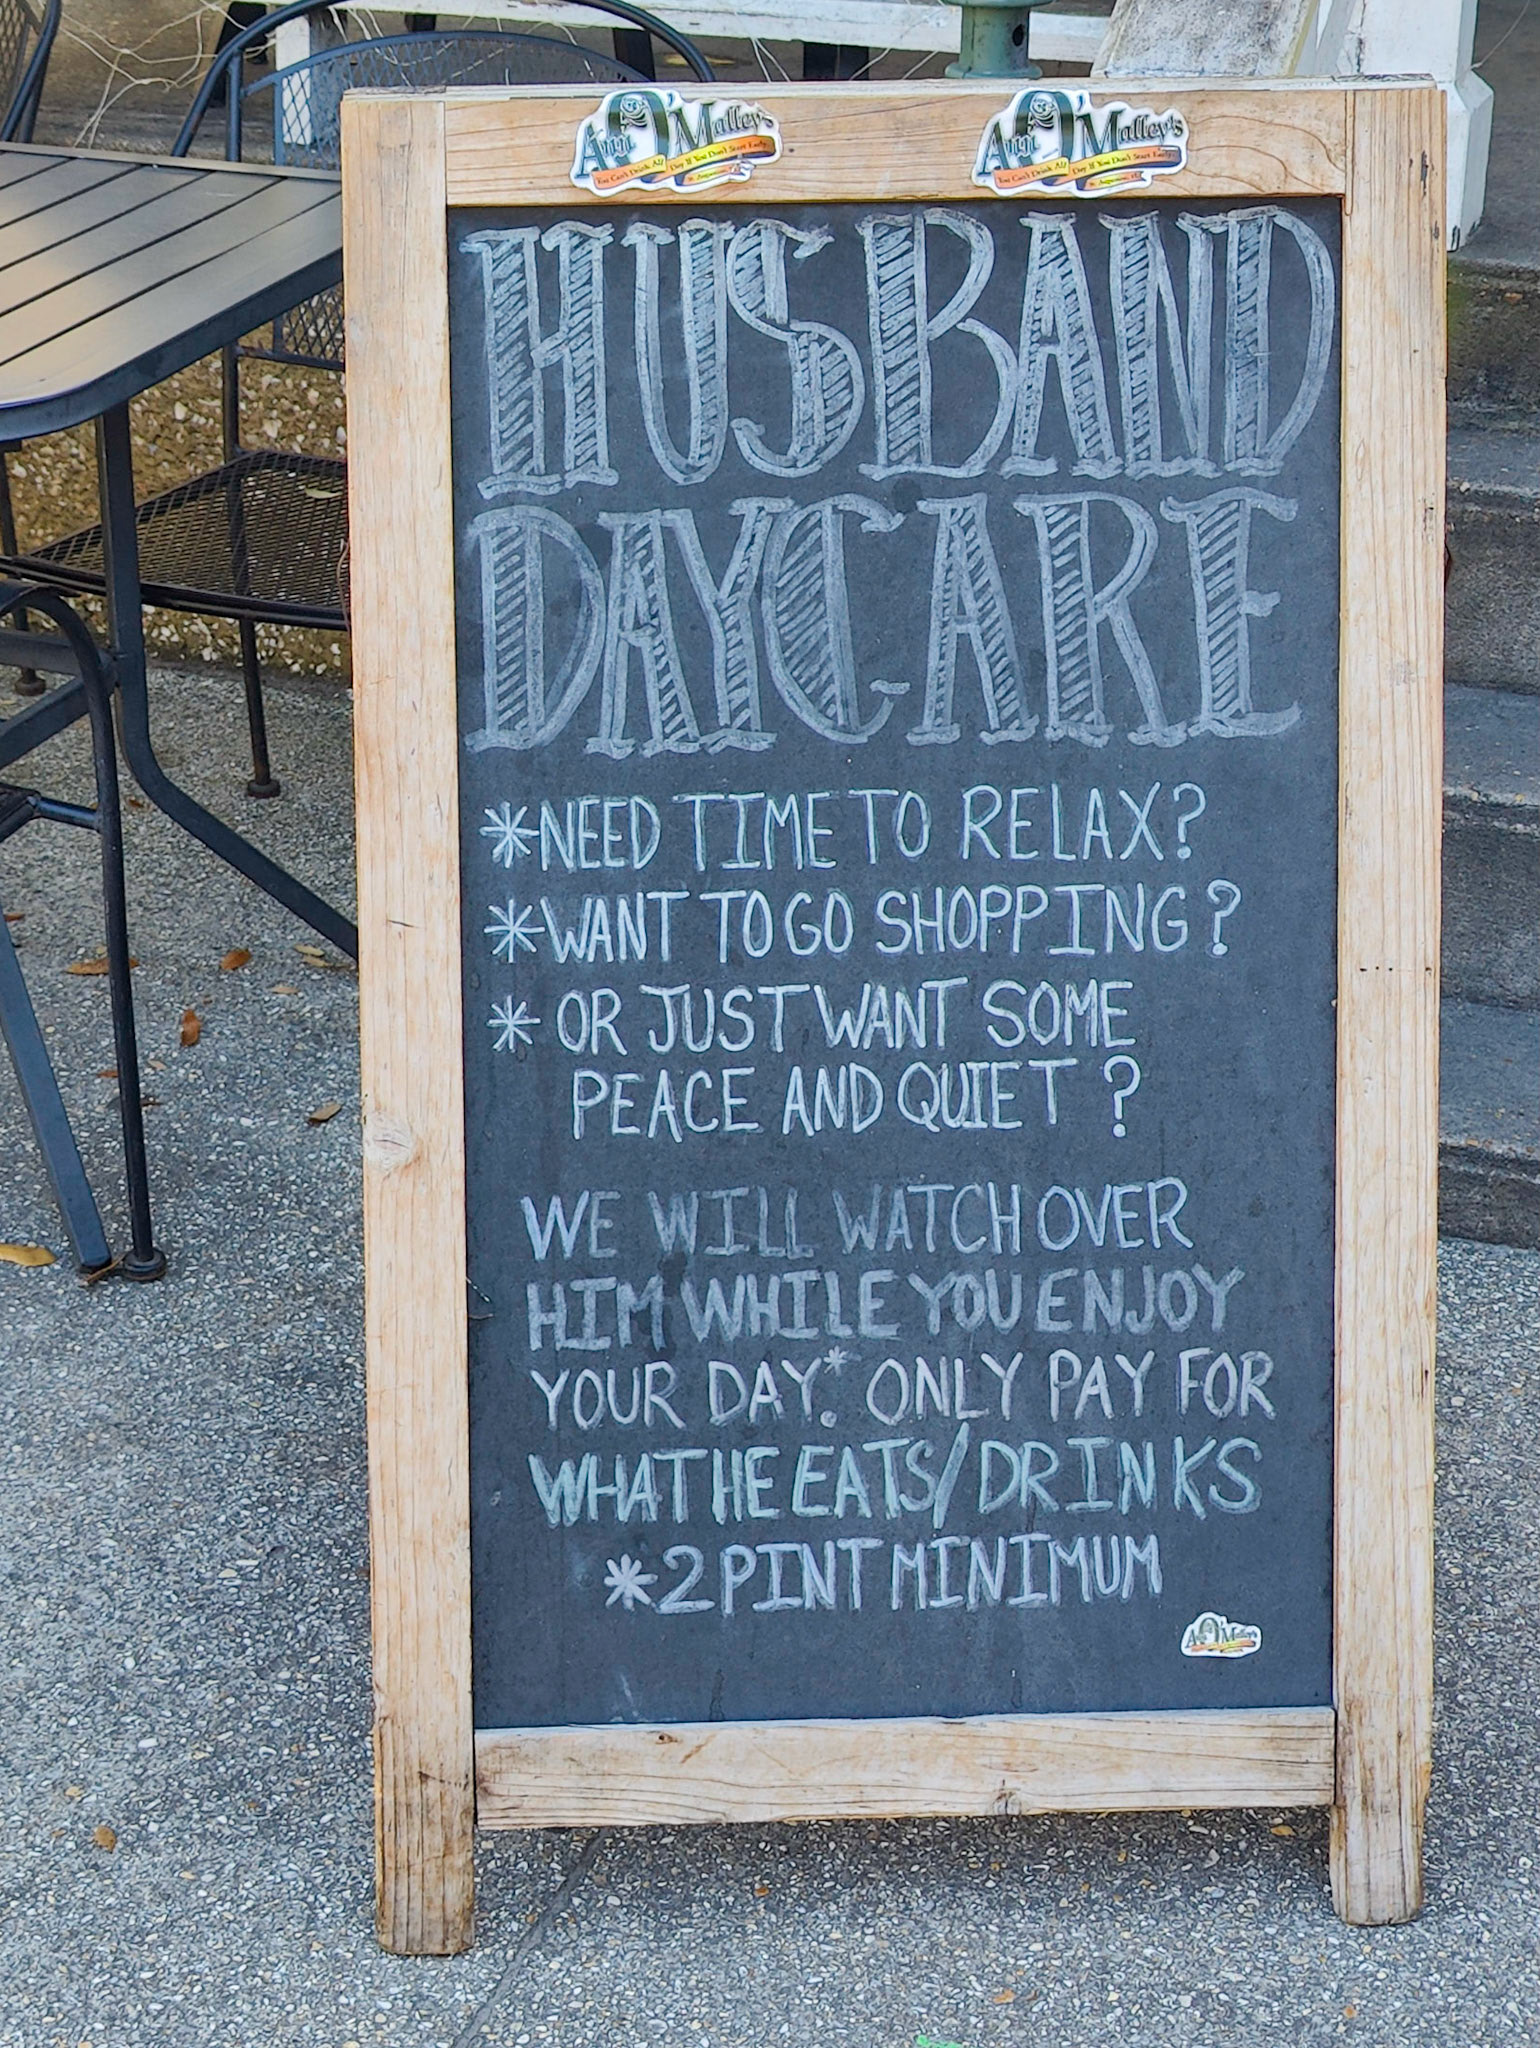 Ann O'Malley's
You Can't Drink All Day If You Don't Start Early
St. Augustine, FL
Ann O'Malley's
You Can't Drink All Day If You Don't Start Early
St. Augustine, FL
HUSBAND
DAYCARE
*NEED TIME TO RELAX?
*WANT TO GO SHOPPING?
* OR JUST WANT SOME
PEACE AND QUIET ?
WE WILL WATCH OVER
HIM WHILE YOU ENJOY
YOUR DAY.* ONLY PAY FOR
WHAT HE EATS/DRINKS
*2 PINT MINIMUM
Ann O'Malley's